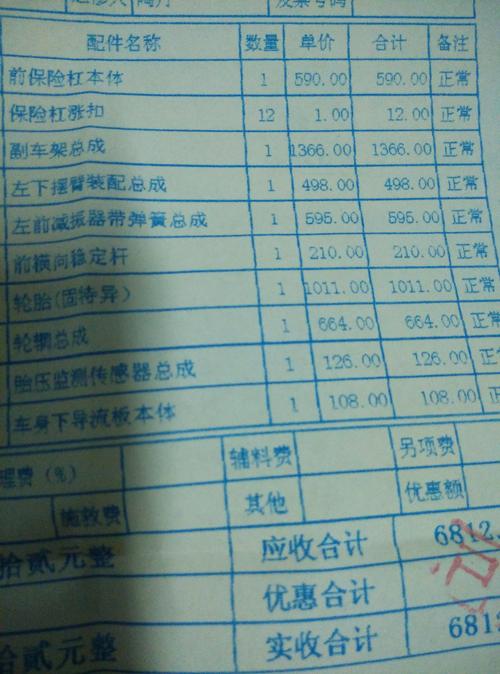 发票号码
配件名称 数量 单价 合计 备注
前保险杠本体 1 590.00 590.00 正常
保险杠涨扣 12 1.00 12.00 正常
副车架总成 1 1366.00 1366.00 正常
左下摆臂装配总成 1 498.00 498.00 正常
左前减振器带弹簧总成 1 595.00 595.00 正常
前横向稳定杆 1 210.00 210.00 正常
轮胎(固特异) 1 1011.00 1011.00 正常
轮辋总成 1 664.00 664.00 正常
胎压监测传感器总成 1 126.00 126.00 正
车身下导流板本体 1 108.00 108.00 正
理费(%) 辅料费 另项费
施救费 其他 优惠额
拾贰元整 应收合计 6812.
优惠合计
拾贰元整 实收合计 681